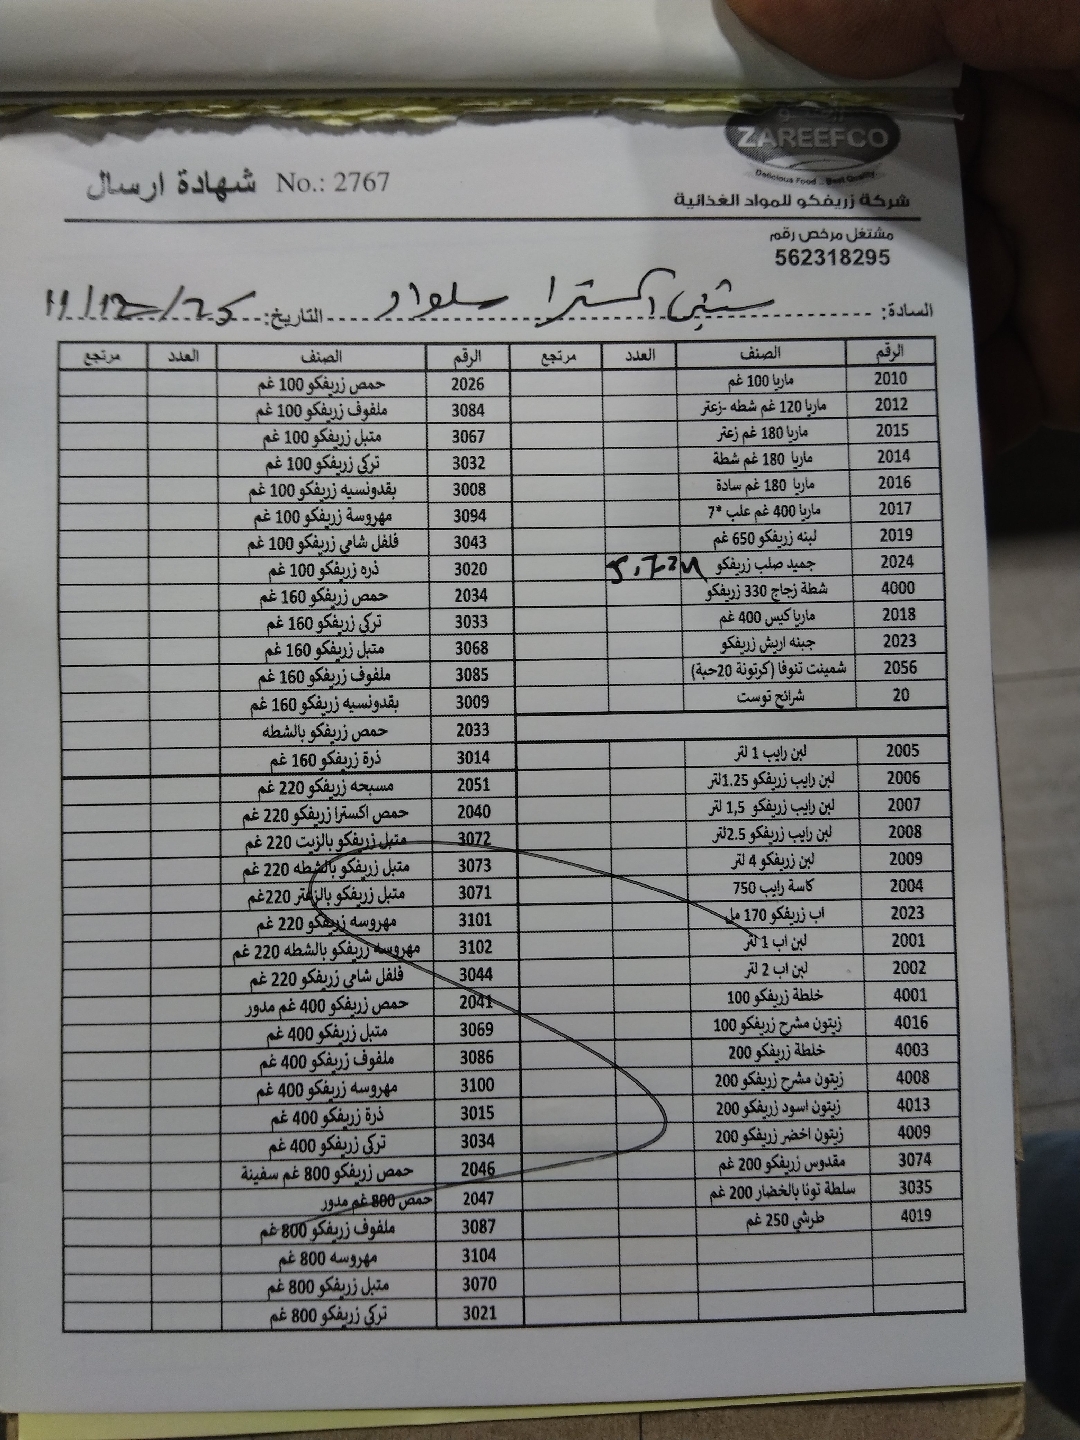 ZAREEFCO
Delicious Food .. Best Quality
شهادة ارسال No.: 2767
شركة زريفكو للمواد الغذائية
مشتغل مرخص رقم
562318295
السادة: اكسترا سلواد التاريخ: 11/12/25
الرقم الصنف العدد مرتجع الرقم الصنف العدد مرتجع
2010 ماريا 100 غم 2026 حمص زريفكو 100 غم
2012 ماريا 120 غم شطه -زعتر 3084 ملفوف زريفكو 100 غم
2015 ماريا 180 غم زعتر 3067 متبل زريفكو 100 غم
2014 ماريا 180 غم شطة 3032 تركي زريفكو 100 غم
2016 ماريا 180 غم سادة 3008 بقدونسيه زريفكو 100 غم
2017 ماريا 400 غم علب *7 3094 مهروسة زريفكو 100 غم
2019 لبنه زريفكو 650 غم 3043 فلفل شامي زريفكو 100 غم
2024 جميد صلب زريفكو 3020 ذره زريفكو 100 غم
4000 شطة زجاج 330 زريفكو 2034 حمص زريفكو 160 غم
2018 ماريا كيس 400 غم 3033 تركي زريفكو 160 غم
2023 جبنه اريش زريفكو 3068 متبل زريفكو 160 غم
2056 شمينت تنوفا (كرتونة 20حبة) 3085 ملفوف زريفكو 160 غم
20 شرائح توست 3009 بقدونسيه زريفكو 160 غم
2033 حمص زريفكو بالشطه
2005 لبن رايب 1 لتر 3014 ذرة زريفكو 160 غم
2006 لبن رايب زريفكو 1.25لتر 2051 مسبحه زريفكو 220 غم
2007 لبن رايب زريفكو 1,5 لتر 2040 حمص اكسترا زريفكو 220 غم
2008 لبن رايب زريفكو 2.5لتر 3072 متبل زريفكو بالزيت 220 غم
2009 لبن زريفكو 4 لتر 3073 متبل زريفكو بالشطه 220 غم
2004 كاسة رايب 750 3071 متبل زريفكو بالزعتر 220غم
2023 اب زريفكو 170 مل 3101 مهروسه زريفكو 220 غم
2001 لبن اب 1 لتر 3102 مهروسه زريفكو بالشطه 220 غم
2002 لبن اب 2 لتر 3044 فلفل شامي زريفكو 220 غم
4001 خلطة زريفكو 100 2041 حمص زريفكو 400 غم مدور
4016 زيتون مشرح زريفكو 100 3069 متبل زريفكو 400 غم
4003 خلطة زريفكو 200 3086 ملفوف زريفكو 400 غم
4008 زيتون مشرح زريفكو 200 3100 مهروسه زريفكو 400 غم
4013 زيتون اسود زريفكو 200 3015 ذرة زريفكو 400 غم
4009 زيتون اخضر زريفكو 200 3034 تركي زريفكو 400 غم
3074 مقدوس زريفكو 200 غم 2046 حمص زريفكو 800 غم سفينة
3035 سلطة تونا بالخضار 200 غم 2047 حمص 800 غم مدور
4019 طرشي 250 غم 3087 ملفوف زريفكو 800 غم
3104 مهروسه 800 غم
3070 متبل زريفكو 800 غم
3021 تركي زريفكو 800 غم